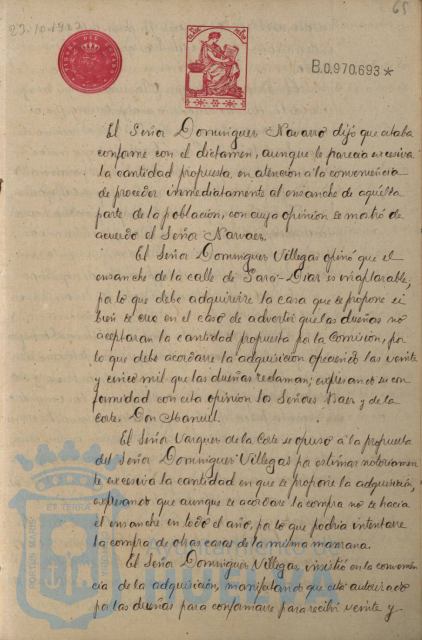 23-10-1902
65
B.0.970.693*
El Señor Dominguez Navarro dijó que estaba
conforme con el dictamen, aunque le parecia excesiva
la cantidad propuesta en atención a la conveniencia
de proceder inmediatamente al ensanche de aquella
parte de la población, con cuya opinión se mostró de
acuerdo el Señor Narvaez.
El Señor Dominguez Villegas opinó que el
ensanche de la calle de Sara-Dias es inaplazable,
por lo que debe adquirirse la casa que se propone si
bien se creo en el caso de advertir que las dueñas no
aceptaran la cantidad propuesta por la Comisión, por
lo que debe acordarse la adquisición ofreciendo las veinte
y cinco mil que las dueñas reclaman; expresando su con
formidad con esta opinión los Señores Baez y de la
Corte, Don Manuel.
El Señor Vazquez de la Corte se opuso á la propuesta
del Señor Dominguez Villegas por estimar notoriamen
te excesiva la cantidad en que se propone la adquisición,
expresando que aunque se acordase la compra no se hacia
el ensanche en todo el año, por lo que podria intentarse
la compra de otras casas de la misma manzana.
El Señor Dominguez Villegas, insistió en la convenien
cia de la adquisición, manifestando que está autorizado
por las dueñas para conformarse para recibir veinte y
PORTUS MARIS
ET TERRÆ
Ayuntamiento de
HUELVA